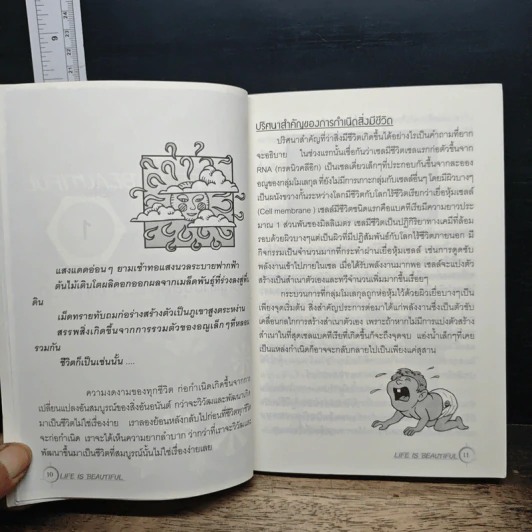 แสงแดดอ่อนๆ ยามเช้าทอแสงนวลระบายฟากฟ้า
ต้นไม้เติบโตผลิดอกออกผลจากเมล็ดพันธุ์ที่ร่วงลงสู่พื้น
ดิน
เม็ดทรายที่ทับถมก่อร่างสร้างตัวเป็นภูเขาสูงตระหง่าน
สรรพสิ่งเกิดขึ้นจากการรวมตัวของอณูเล็กๆที่หลอม
รวมกัน
ชีวิตก็เป็นเช่นนั้น ....
ความงดงามของทุกชีวิต ก่อกำเนิดเกิดขึ้นจากการ
เปลี่ยนแปลงอันสมบูรณ์ของสิ่งอันอนันต์ กว่าจะวิวัฒและพัฒนาเกิด
มาเป็นชีวิตไม่ใช่เรื่องง่าย เราลองย้อนหลังกลับไปก่อนที่ชีวิตทุกชีวิต
จะก่อกำเนิด เราจะได้เห็นความยากลำบาก ว่ากว่าที่เราจะวิวัฒและ
พัฒนาขึ้นมาเป็นชีวิตที่สมบูรณ์นั้นไม่ใช่เรื่องง่ายเลย
10 LIFE IS BEAUTIFUL
ปริศนาสำคัญของการกำเนิดสิ่งมีชีวิต
ปริศนาสำคัญที่ว่าสิ่งมีชีวิตเกิดขึ้นได้อย่างไรเป็นคำถามที่ยาก
จะอธิบาย ในช่วงแรกนั้นเชื่อกันว่าเซลมีชีวิตเซลแรกก่อตัวขึ้นจาก
RNA (กรดนิวคลีอิก) เป็นเซลเดี่ยวเล็กๆที่ประกอบกันขึ้นจากละออง
อณูของกลุ่มโมเลกุล ที่ยังไม่มีการเกาะกลุ่มกับเซลล์อื่นๆ โดยมีผิวบางๆ
เป็นผนังขวางกั้นระหว่างโลกมีชีวิตกับโลกไร้ชีวิตเรียกว่าเยื่อหุ้มเซลล์
(Cell membrane) เซลล์มีชีวิตชนิดแรกคือแบคทีเรียมีความยาวประ
มาณ 1 ส่วนพันของมิลลิเมตร เซลมีชีวิตเป็นปฏิกิริยาทางเคมีที่ล้อม
รอบด้วยผิวบางๆแต่เป็นผิวที่มีปฏิสัมพันธ์กับโลกไร้ชีวิตภายนอก มี
กิจกรรมเป็นจำนวนมากที่กระทำผ่านเยื่อหุ้มเซลล์ เช่นการดูดซับ
พลังงานเข้าไปภายในเซล เมื่อได้รับพลังงานมากพอ เซลล์จะแบ่งตัว
สร้างเป็นสำเนาตัวเองและทวีจำนวนเพิ่มมากขึ้นเรื่อยๆ
กระบวนการที่กลุ่มโมเลกุลถูกห่อหุ้มไว้ด้วยผิวเยื่อบางๆเป็น
เพียงจุดเริ่มต้น สิ่งสำคัญประการต่อมาได้แก่พลังงานซึ่งเป็นตัวขับ
เคลื่อนกลไกการสร้างสำเนาตัวเอง เพราะถ้าหากไม่มีการแบ่งตัวสร้าง
สำเนาในที่สุดเซลแบคทีเรียที่เกิดขึ้นก็จะถึงจุดจบ แอ่งน้ำเล็กๆที่เคย
เป็นแหล่งกำเนิดก็อาจจะกลับกลายไปเป็นเพียงแค่สุสาน
LIFE IS BEAUTIFUL 11